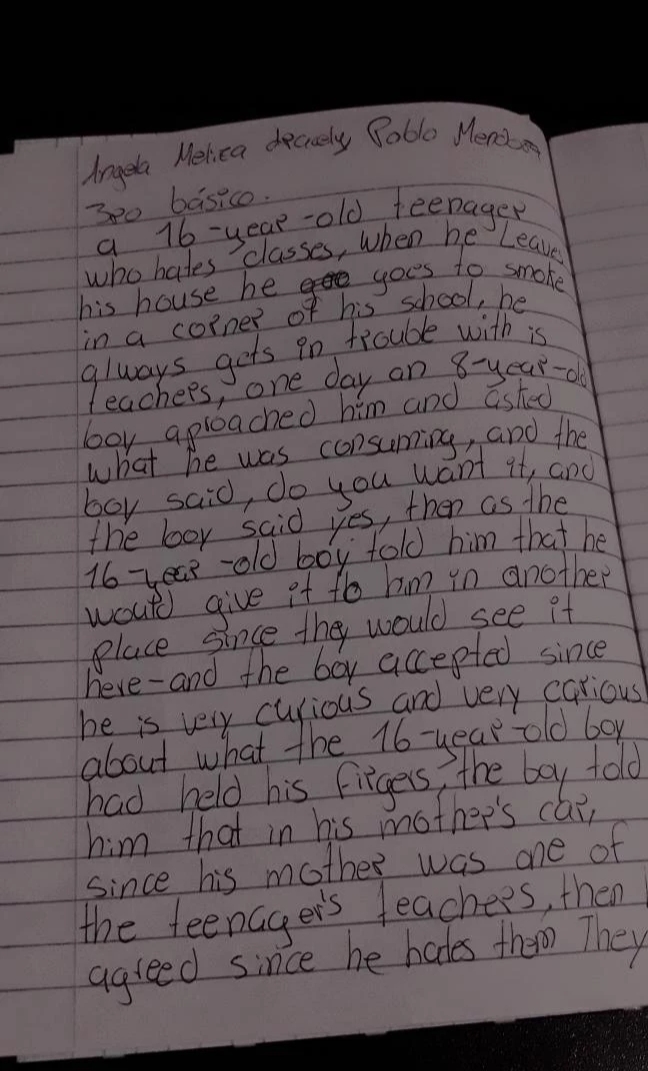 Angela Melissa Pablo
3ro básico.
a 16-year-old teenager
who hates classes, when he Leaves
his house he goes to smoke
in a corner of his school, he
always gets in trouble with is
teachers, one day an 8-year-old
boy aproached him and asked
what he was consuming, and the
boy said, do you want it, and
the boy said yes, then as the
16-year-old boy told him that he
would give it to him in another
place since they would see it
here-and the boy accepted since
he is very curious and very carious
about what the 16-year-old boy
had held his fingers, the boy told
him that in his mother's car,
since his mother was one of
the teenager's teachers, then
agreed since he hates them They